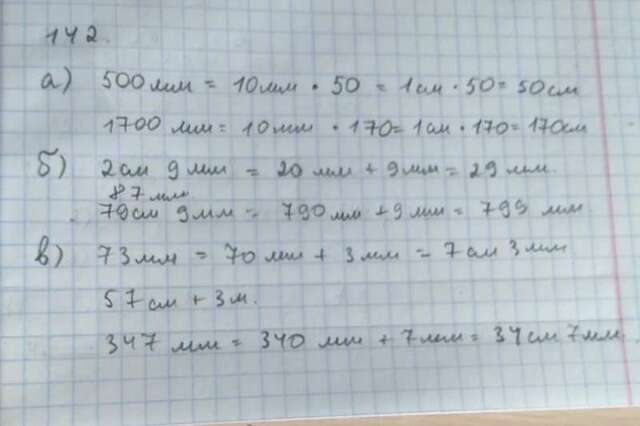 142.
а) 500 мм = 10 мм · 50 = 1 см · 50 = 50 см
1700 мм = 10 мм · 170 = 1 см · 170 = 170 см
б) 2 см 9 мм = 20 мм + 9 мм = 29 мм.
87 мм
79 см 9 мм = 790 мм + 9 мм = 799 мм
в) 73 мм = 70 мм + 3 мм = 7 см 3 мм
57 см + 3 м.
347 мм = 340 мм + 7 мм = 34 см 7 мм